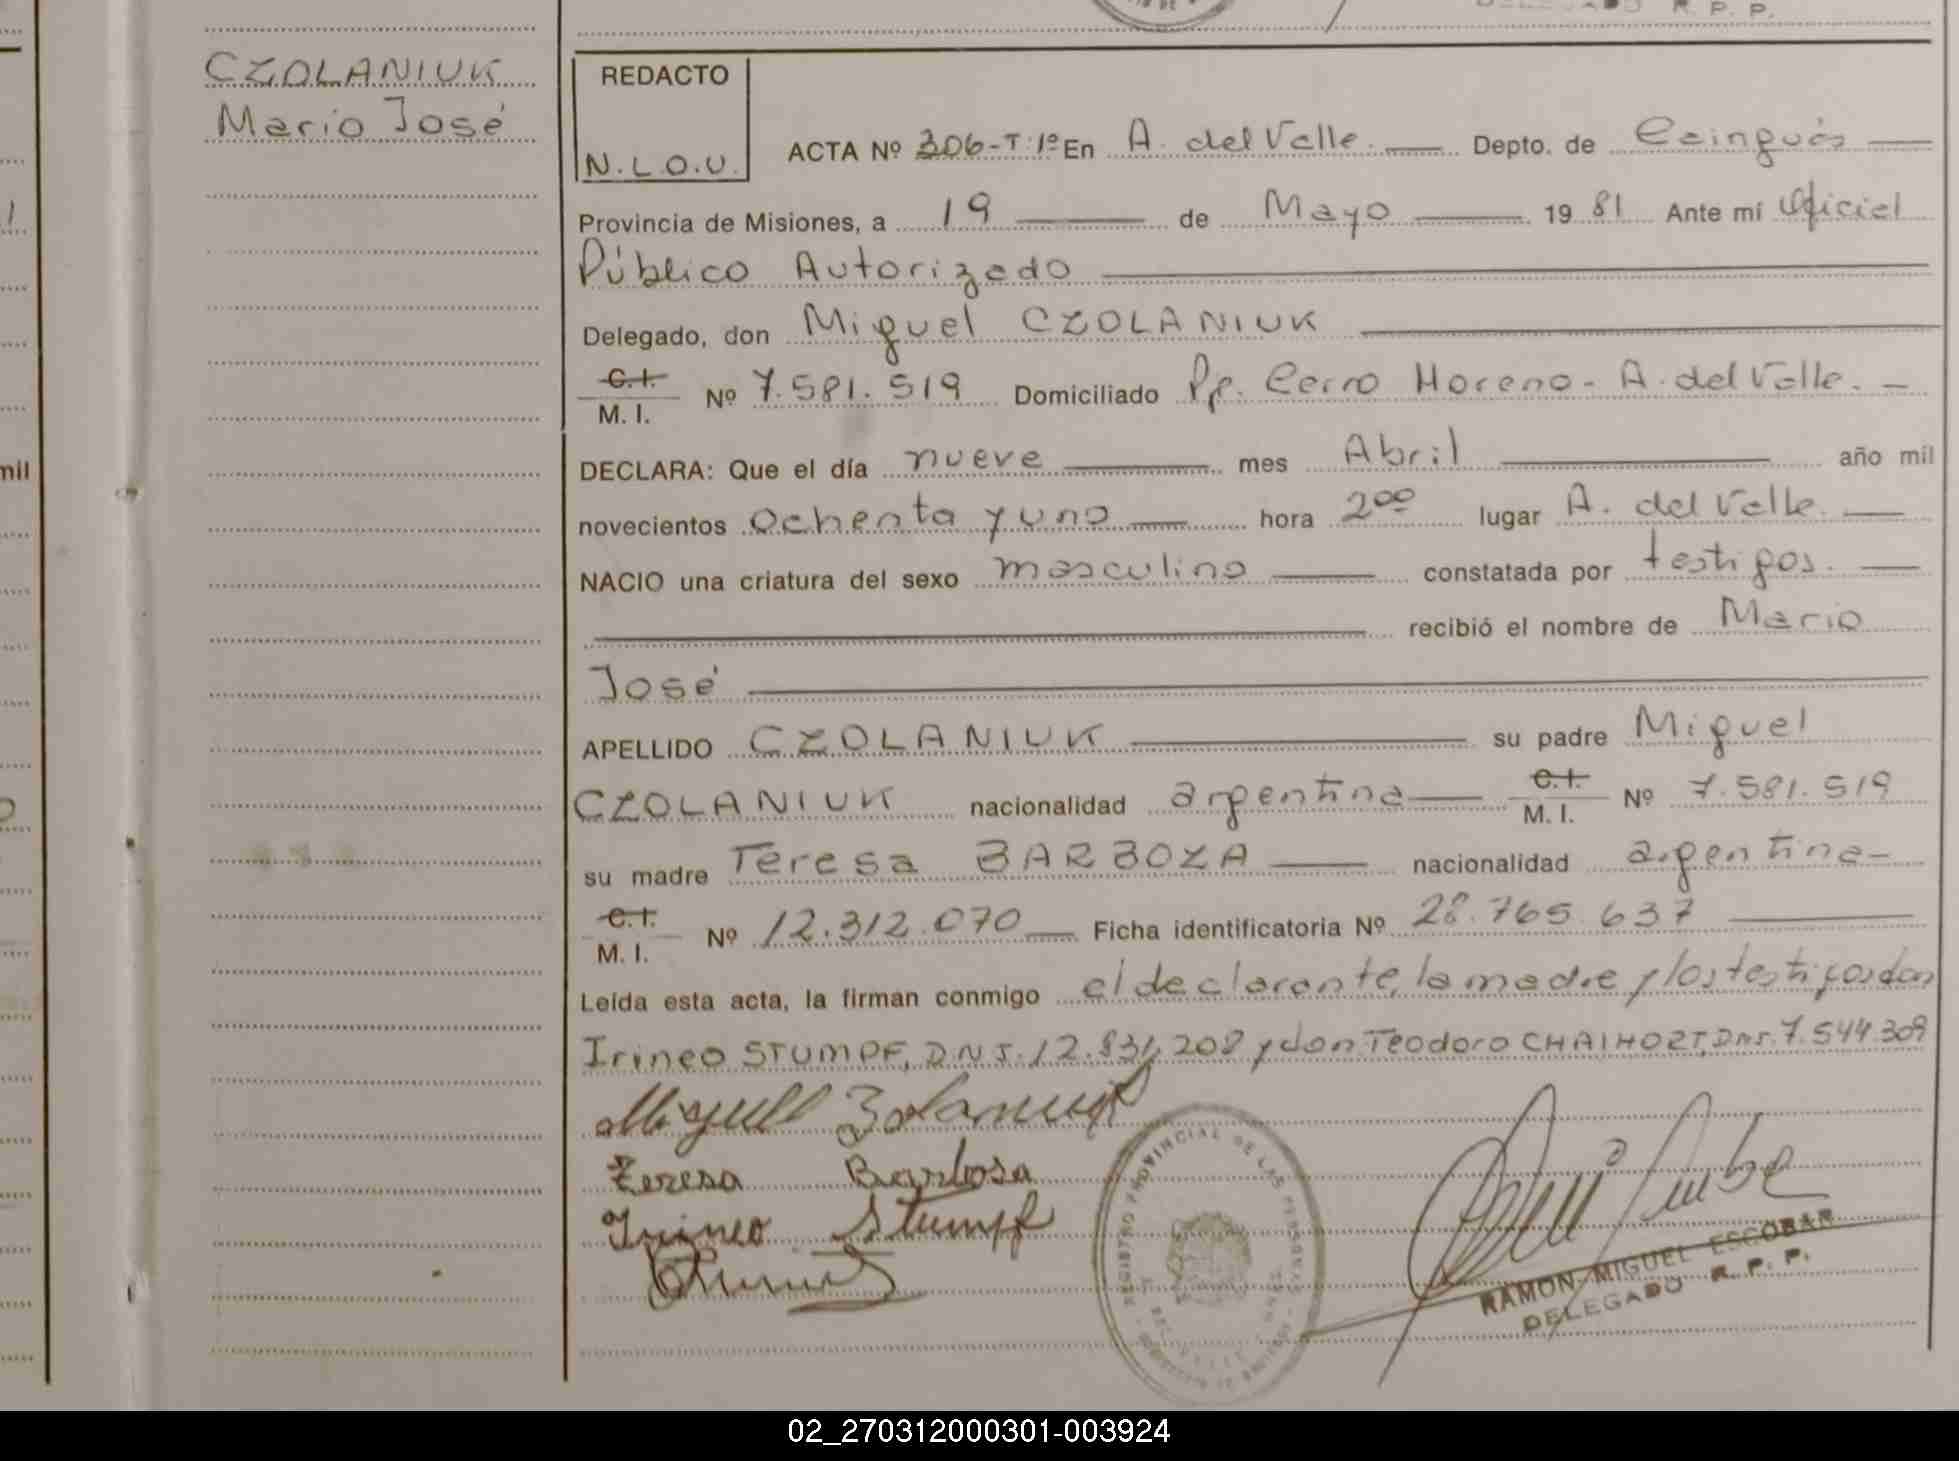 CZOLANIUK
Mario José
REDACTO
N.L.O.U.
ACTA Nº 306-T:1º En A. del Valle. Depto. de Cainguás
Provincia de Misiones, a 19 de Mayo 19 81 Ante mí Oficial
Público Autorizado
Delegado, don Miguel CZOLANIUK
C.I. M. I. Nº 7.581.519 Domiciliado Pje. Cerro Moreno - A. del Valle. -
DECLARA: Que el día nueve mes Abril año mil
novecientos Ochenta y uno hora 2⁰⁰ lugar A. del Valle.
NACIO una criatura del sexo masculino constatada por testigos.
recibió el nombre de Mario
José
APELLIDO CZOLANIUK su padre Miguel
CZOLANIUK nacionalidad argentina C.I. M. I. Nº 7.581.519
su madre Teresa BARBOZA nacionalidad argentina-
C.I. M. I. Nº 12.312.070 Ficha identificatoria Nº 28.765.637
Leída esta acta, la firman conmigo el declarante, la madre y los testigos don
Irineo STUMPF, D.N.I. 12.831.208 y don Teodoro CHAIHORT, DNI. 7.544.309
Miguel Zolaniuk
Teresa Barbosa
Irineo Stumpf
REGISTRO PROVINCIAL DE LAS PERSONAS
RAMON MIGUEL ESCOBAR
DELEGADO R. P. P.
02_270312000301-003924